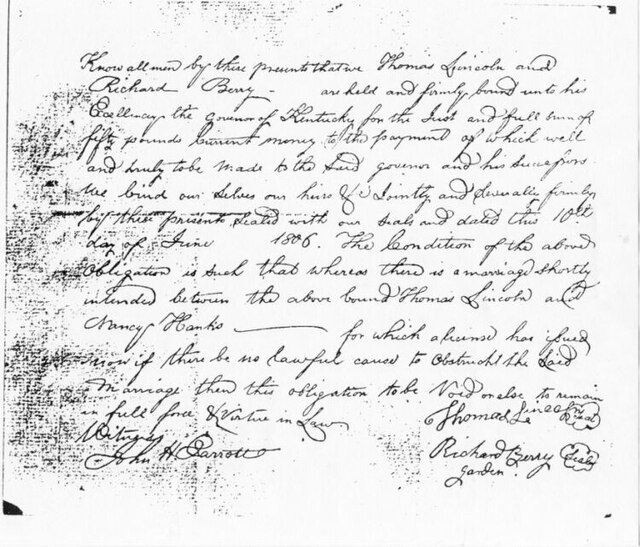 Know all men by these presents that we Thomas Lincoln and
Richard Berry - are held and firmly bound unto his
Excellency the governor of Kentucky for the Just and full sum of
fifty pounds Current money to the payment of which well
and truly to be Made to the Said governor and his Successors
We bind our selves our heirs &c Jointly and Severally firmly
by these presents Sealed with our Seals and dated this 10th
day of June 1806. The Condition of the above
Obligation is Such that whereas there is a marriage Shortly
intended between the above bound Thomas Lincoln and
Nancy Hanks — for which a license has issued
now if there be no lawful cause to Obstruct the Said
Marriage then this obligation to be Void or else to remain
in full force & Virtue in Law
Thomas Lincoln Seal
Witness
John H Parrott
Richard Berry Seal
garden